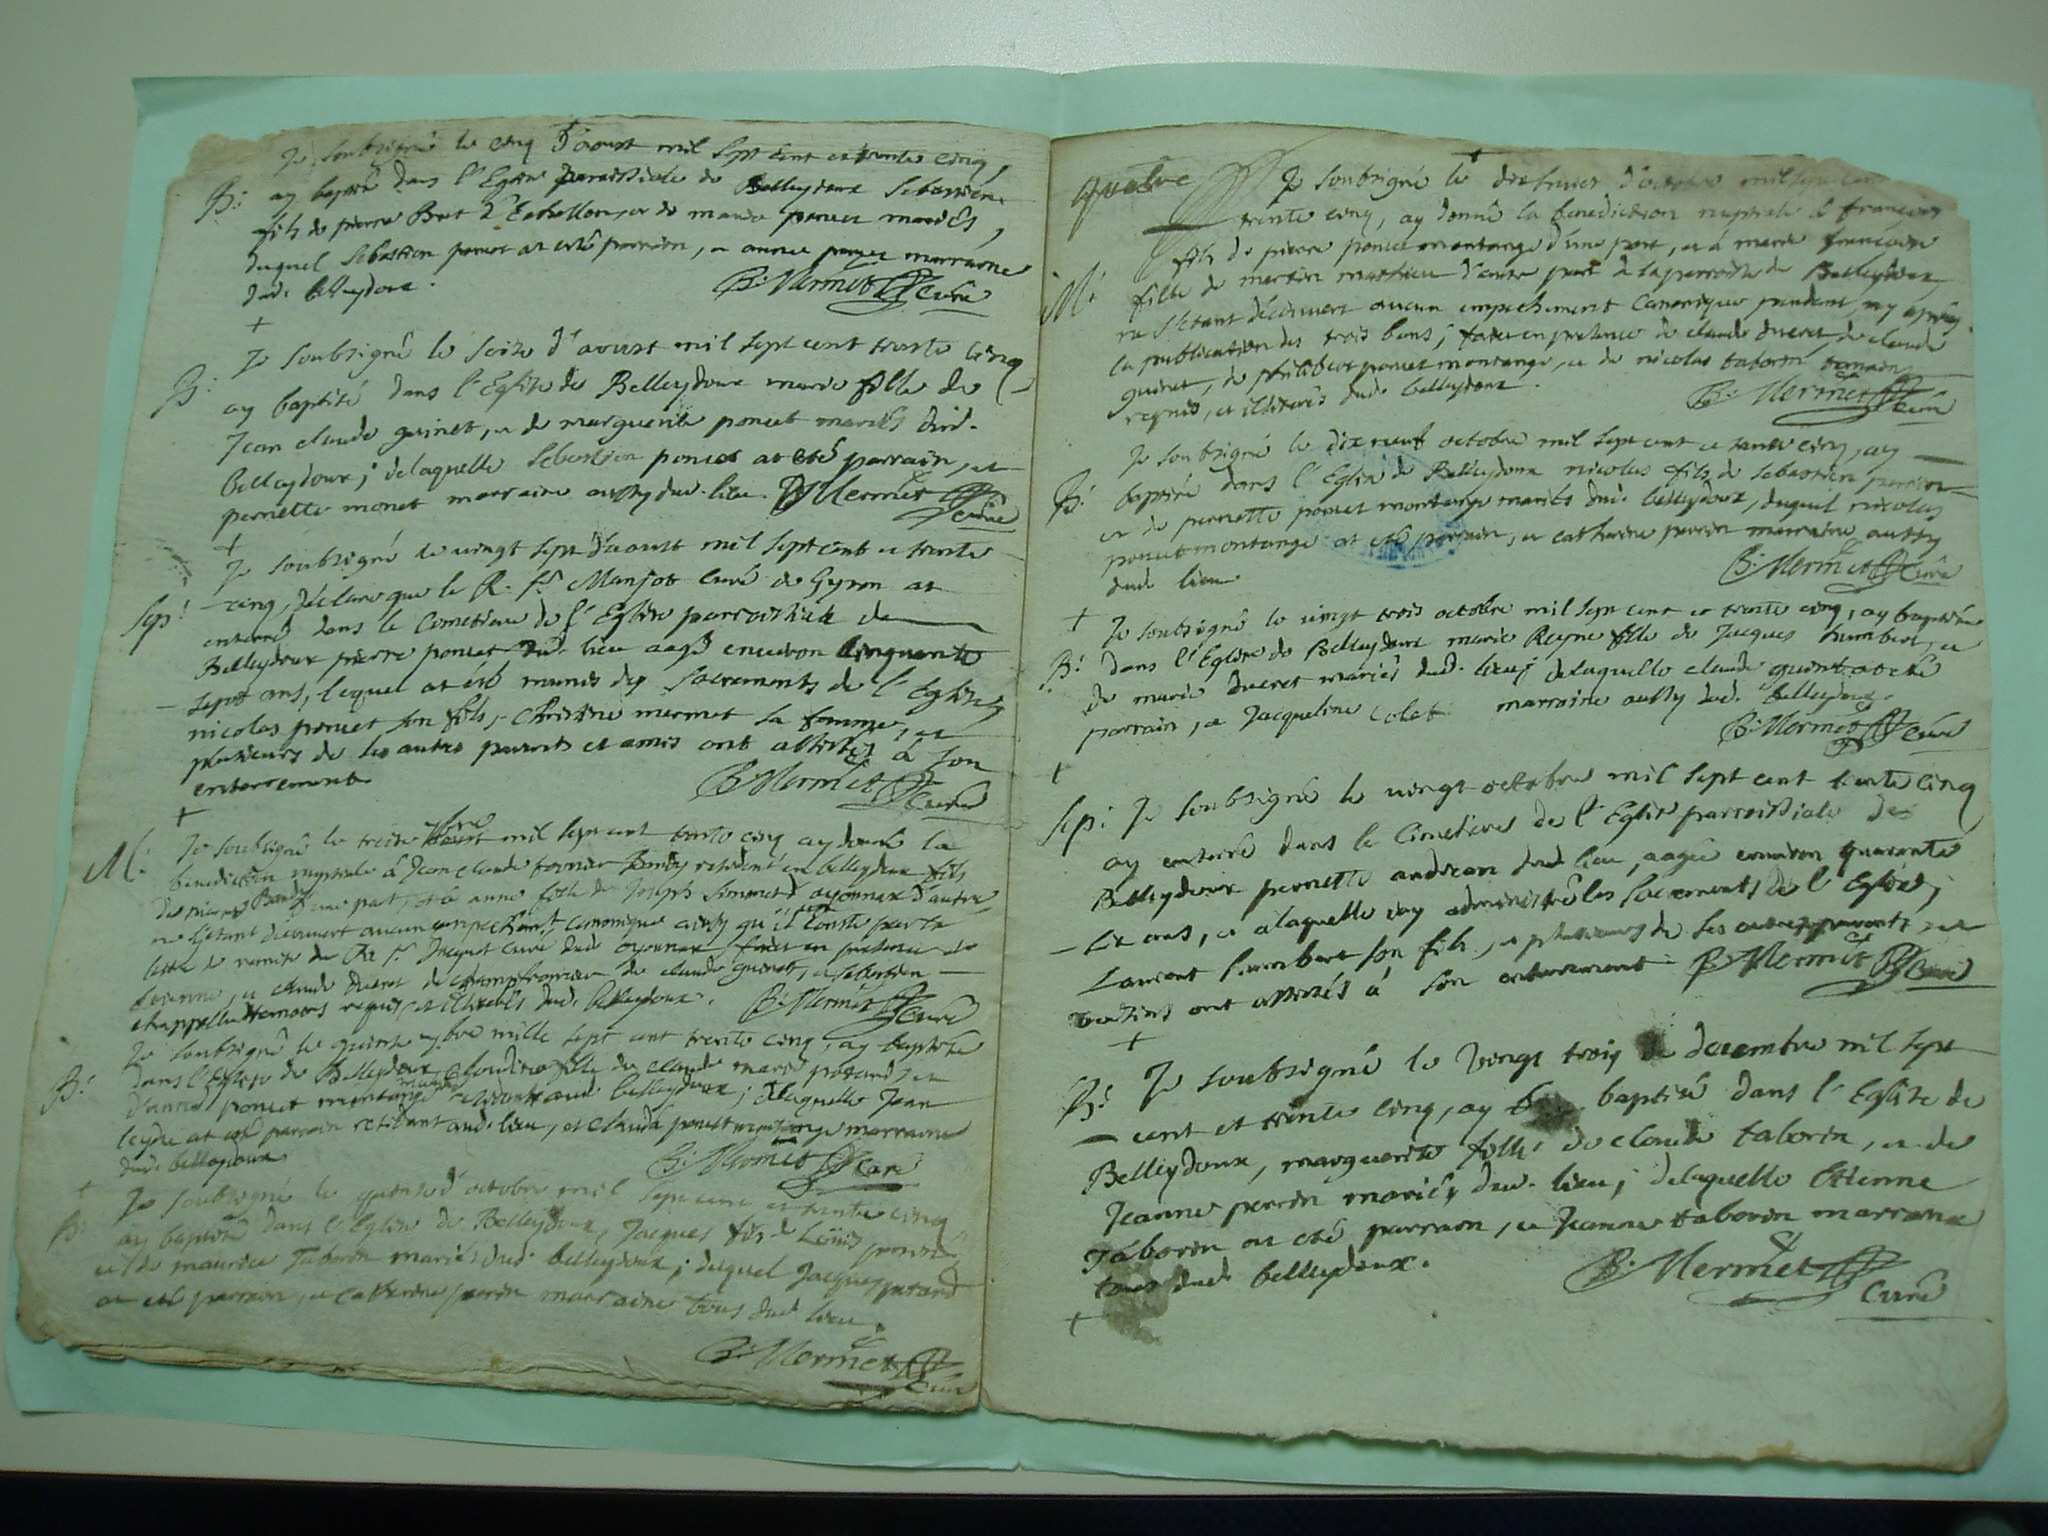 Je soubsigné le cinq d'aoust mil sept cent et trente cinq,
B: ay baptisé dans l'Eglise parroissiale de Belleydoux Sebastien
fils de pierre Bret d'Echallon, et de marie poncet mariés,
duquel Sebastien poncet at eté parrain, et poncet marraine
dud. belleydoux.
B: Mermet Curé
+
Je soubsigné le seize d'aoust mil sept cent trente cinq
B: ay baptisé dans l'Eglise de Belleydoux marie fille de
Jean claude guinet, et de marguerite poncet mariés dud.
Belleydoux; delaquelle Sebastien poncet at eté parrain, et
pernette monet marraine aussy dud. lieu. B: Mermet
Curé
+
Je soubsigné le vingt sept d'aoust mil sept cent et trente
cinq, déclare que le R. Sr. Manjot Curé de Gyron at
Sep: enterré dans le Cimetiere de l'Eglise parroissiale de
Belleydoux pierre poncet dud. lieu aagé environ Cinquante
sept ans, lequel at eté munis des Sacrements de l'Eglise,
nicolas poncet son fils, Christine mermet sa femme, et
plusieurs de ses autres parents et amis ont assistés à son
enterrement
B: Mermet Curé
+
Je soubsigné le treize mil sept cent trente cinq ay donné la
M: benediction nuptiale à Jean claude residant en belleydoux fils
de pierre d'une part, et à anne fille de Joseph d'oyonnax d'autre
ne s'etant découvert aucun empechement canonique ainsy qu'il conste par la
lettre de remise du Rd. Sr. Curé dud. oyonnax, fait en presence de
et claude ducret de champfromier de claude guinet, et sebastien
chappellu temoins requis et illiterés dud. belleydoux. B: Mermet Curé
Je soubsigné le quinze mille sept cent trente cinq, ay baptisé
B: dans l'Eglise de Belleydoux claudine fille de claude marie potard, et
d'anne poncet montange mariés residants aud. belleydoux; delaquelle Jean
at eté parrain residant aud. lieu, et claude poncet montange marraine
dud. belleydoux
B: Mermet Curé
+
Je soubsigné le quinze d'octobre mil sept cent et trente cinq
B: ay baptisé dans l'Eglise de Belleydoux, Jacques fils de Louis
et de maurice Taborin mariés dud. belleydoux; duquel Jacques potard
at eté parrain, et catherine perrin marraine tous dud. lieu.
B: Mermet
Curé
quatre
+
Je soubsigné le d'octobre mil sept cent
trente cinq, ay donné la benediction nuptiale à françois
fils de pierre poncet montange d'une part, et à marie françoise
M: fille de martin mathieu d'autre part de la parroisse de Belleydoux
ne s'etant découvert aucun empechement Canonique pendant, ny après
la publication des trois bans; fait en presence de claude ducret, de claude
guinet, de philibert poncet montange, et de nicolas taborin temoins
requis, et illiterés dud. belleydoux.
B: Mermet Curé
Je soubsigné le dix neuf octobre mil sept cent et trente cinq, ay
B: baptisé dans l'Eglise de Belleydoux nicolas fils de sebastien perrin
et de pernette poncet montange mariés dud. belleydoux, duquel nicolas
poncet montange at eté parrain, et catherine perrin marraine aussy
dud. lieu
B: Mermet Curé
+ Je soubsigné le vingt trois octobre mil sept cent et trente cinq, ay baptisé
B: dans l'Eglise de Belleydoux marie Reyne fille de Jacques humbert, et
de marie ducret mariés dud. lieu; delaquelle claude guinet at eté
parrain, et Jacqueline marraine aussy dud. belleydoux.
B: Mermet Curé
+
Sep: Je soubsigné le vingt octobre mil sept cent trente cinq
ay enterré dans le Cimetiere de l'Eglise parroissiale de
Belleydoux pernette dud. lieu, aagée environ quarante
six ans, et alaquelle j'ay administré les sacrements de l'Eglise,
Laurent humbert son fils, et plusieurs de ses autres parents et
voisins ont assistés à son enterrement. B: Mermet Curé
+
B: Je soubsigné le vingt trois de decembre mil sept
cent et trente cinq, ay baptisé dans l'Eglise de
Belleydoux, marguerite fille de claude taborin, et de
Jeanne perrin mariés dud. lieu; delaquelle Etienne
Taborin at eté parrain, et Jeanne taborin marraine
tous dud. belleydoux.
B: Mermet
Curé
+